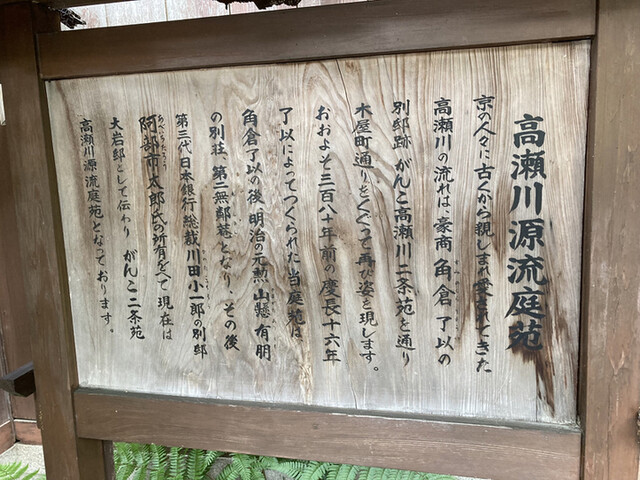 高瀬川源流庭苑
京の人々に古くから親しまれ愛されてきた
高瀬川の流れは、豪商角倉了以の
別邸跡がんこ高瀬川二条苑を通り
木屋町通りをくぐって再び姿を現します。
おおよそ三百八十年前の慶長十六年
了以によってつくられた当庭苑は
角倉了以の後、明治の元勲山縣有朋
の別荘、第二無鄰菴となり、その後
第三代日本銀行総裁川田小一郎の別邸
阿部市太郎氏の所有をへて現在は
大岩邸として伝わり がんこ二条苑
高瀬川源流庭苑となっております。